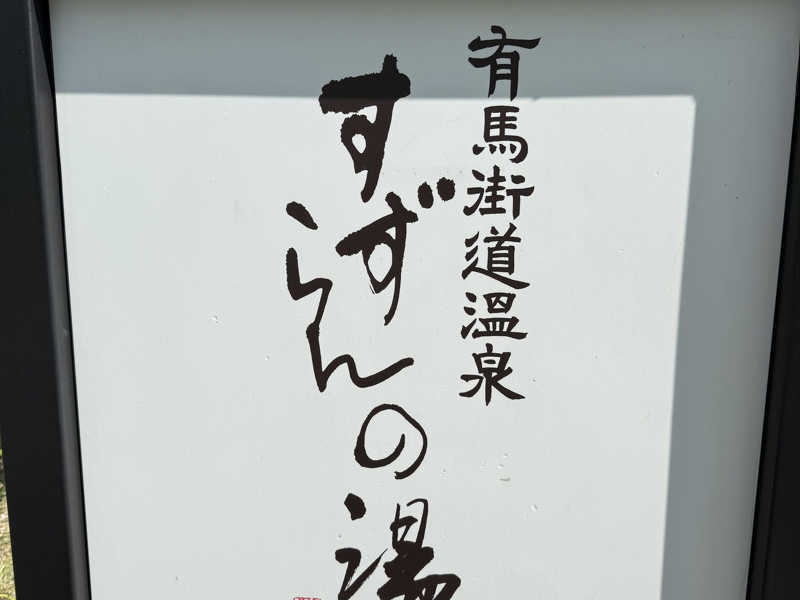 有馬街道温泉
すずらんの湯